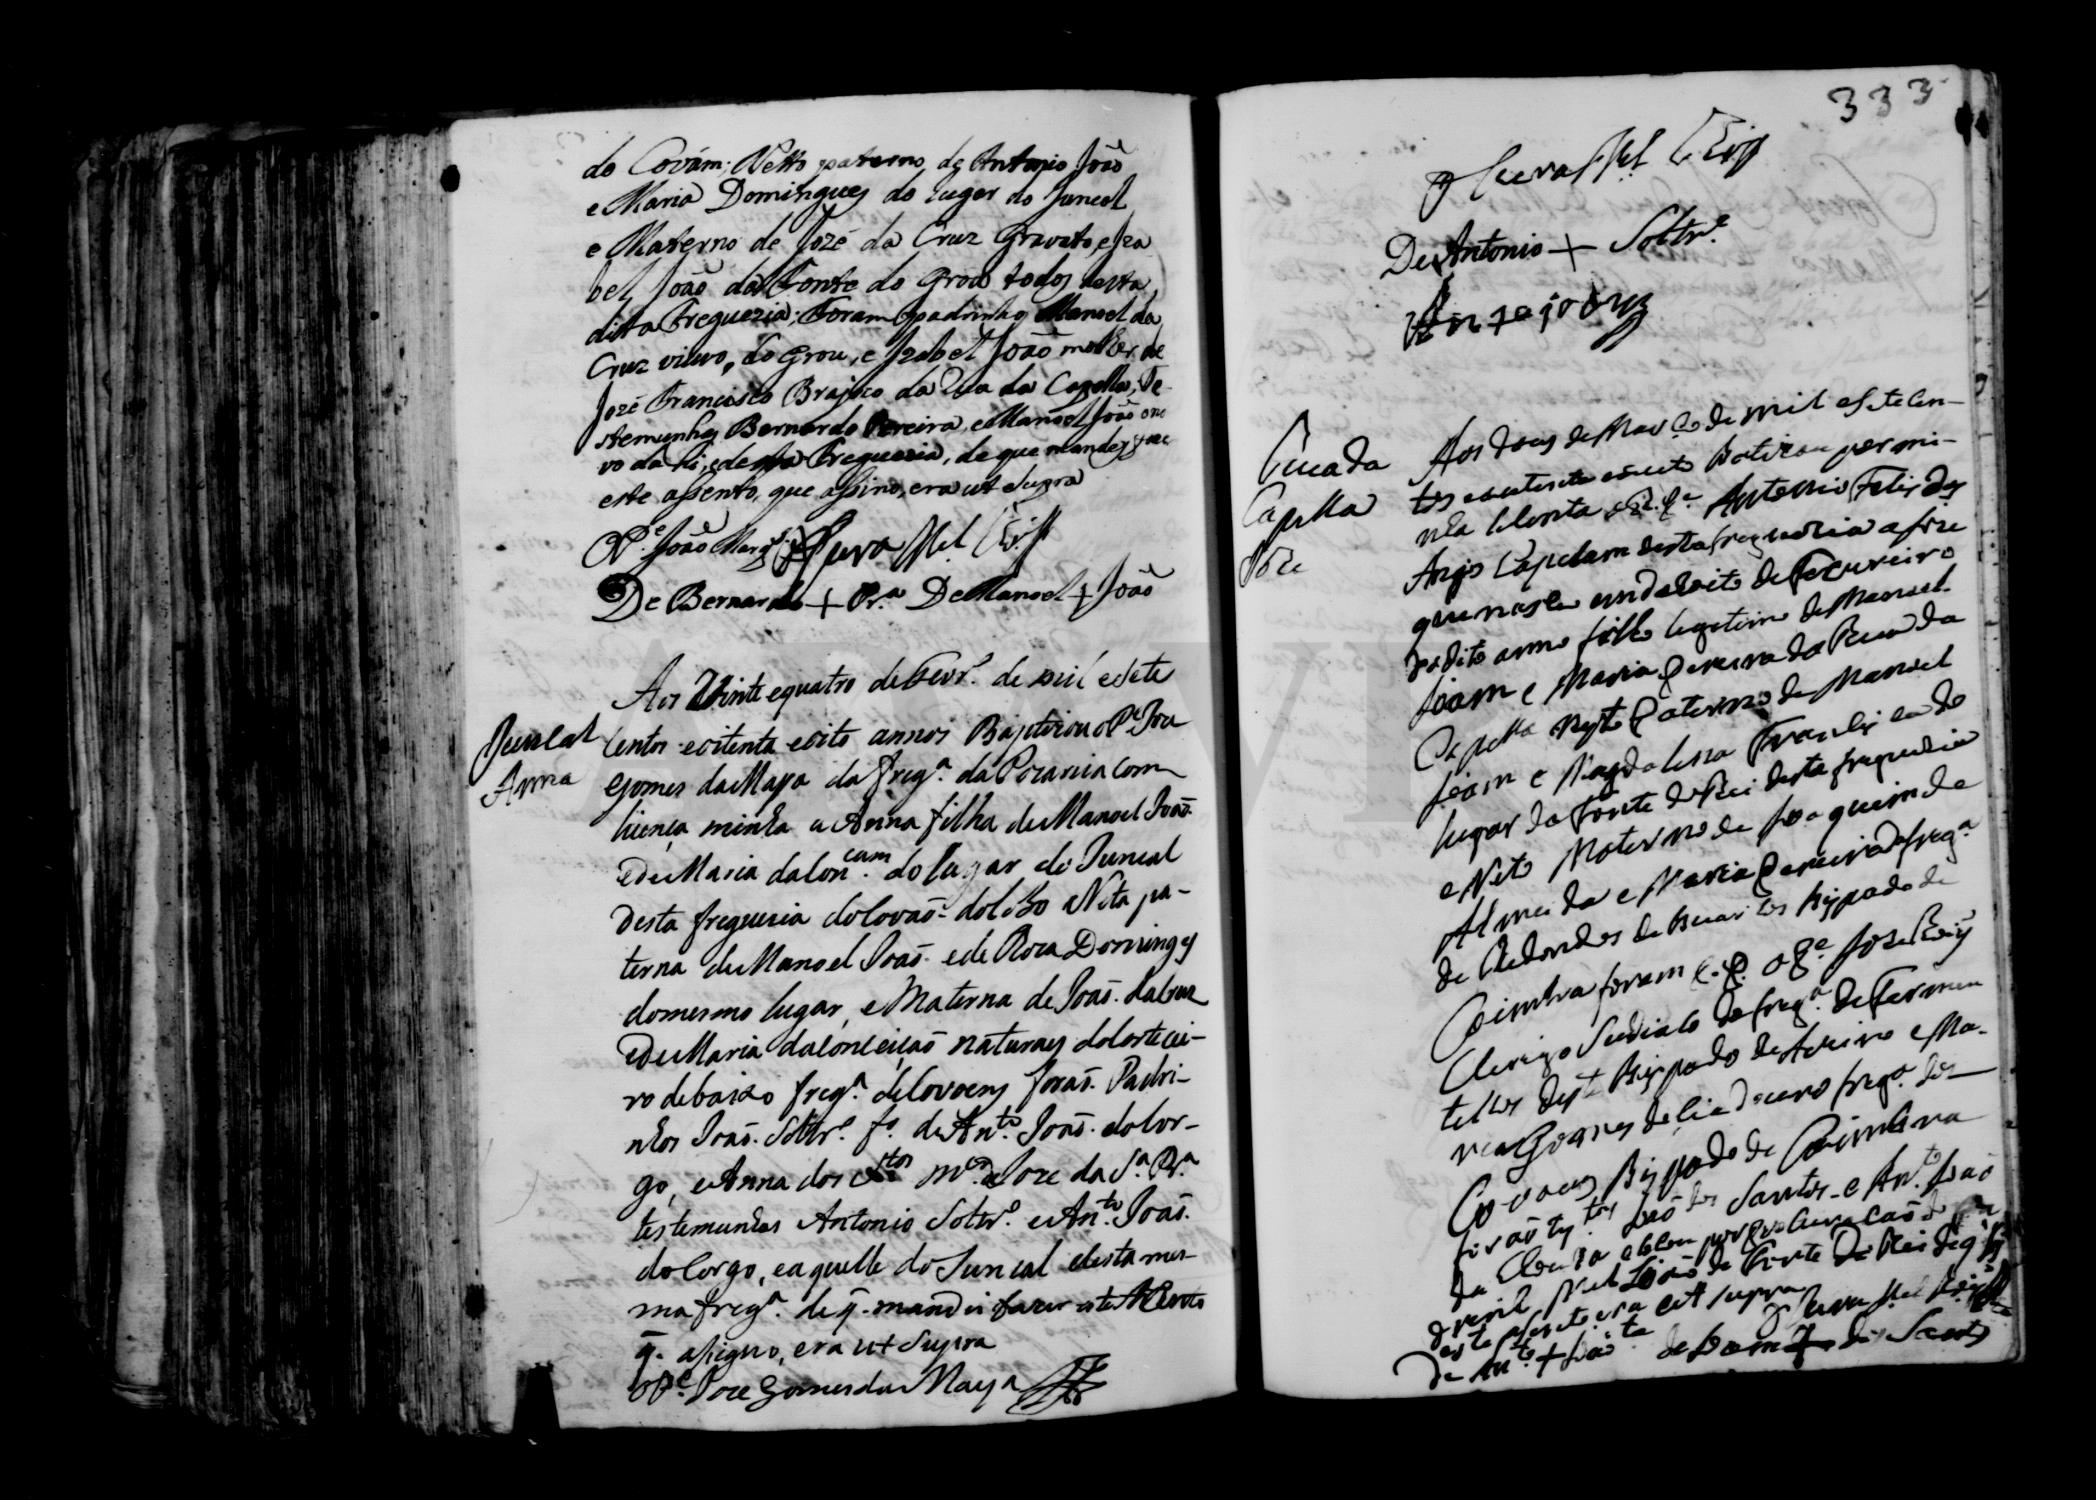 do Covám; Netto paterno de Antonio João
e Maria Domingues do lugar do Juncal
e Materno de Jozé da Cruz Gravato, e Iza
bel João da Fonte do Grou todos desta
dita Freguezia; Foram padrinhos Manoel da
Cruz viuvo, do Grou, e Izabel João molher de
Jozé Francisco Brajoco da Rua da Capella; Te-
stemunhas Bernardo Pereira, e Manoel João
vo da hi, e desta Freguezia, de que mandey fazer
este assento, que assino, era ut supra
O P.e João Marq.s O Cura M.el
De Bernardo + Pr.a De Manoel + João
Juncal
Anna
Aos Vinte e quatro de Fevr.o de mil e sete
centos e oitenta e oito annos Bajptizou o P.e Joze
Gomes da Maya da freg.a da Pocariça com
licença minha a Anna filha de Manoel João
e de Maria da Con.cam do lugar do Juncal
desta freguezia do Covaõ do Lobo Neta pa-
terna de Manoel Joaõ e de Roza Domingues
do mesmo lugar, e Materna de Joaõ da Cruz
e de Maria da Conceiçaõ naturaes do Corticei-
ro de baixo freg.a de Covoens foraõ Padri-
nhos Joaõ Soltr.o f.o de An.to Joaõ do Cor-
go, e Anna dos S.tos m.er de Joze da S.a Pr.a
testemunhas Antonio Soltr.o e An.to Joaõ
do Corgo, e aquelle do Juncal desta mes-
ma freg.a de q. mandei fazer este Acento
q. assigno, era ut supra
O P.e Joze Gomes da Maya
333
O Cura M.el
De Antonio + Soltr.o
Rua da
Capella
Joze
Aos dous de Março de mil e setecen-
tos e outenta e outo Batizou per mi-
nha licenta o R. P.e Antonio Felis dos
Anjos Capelam desta freguezia a Joze
que nasceo em dezoito de Fevereiro
do dito anno filho legetimo de Manoel
Joam e Maria Pereira da Rua da
Capella neto Paterno de Manoel
Joam e Magdalena Francisca do
lugar da Fonte do Rei desta freguezia
e Neto Materno de Joaquim de
Almeida e Maria Pereira da freg.a
de Redondos de Buarcos Bispado de
Coimbra foram P.P. o P.e Joze Roiz
Clerigo Subdiaco da freg.a de Fermen
tellos deste Bispado de Aveiro e Ma-
ria Gomes de freg.a dos
Covoens Bispado de Coimbra
foraõ t.as Joaõ dos Santos e An.to Joaõ
da
M.el Joaõ da Fonte do Rei de q fiz
este asento era ut supra O Cura M.el
De An.to + Joaõ de Joam + dos Santos